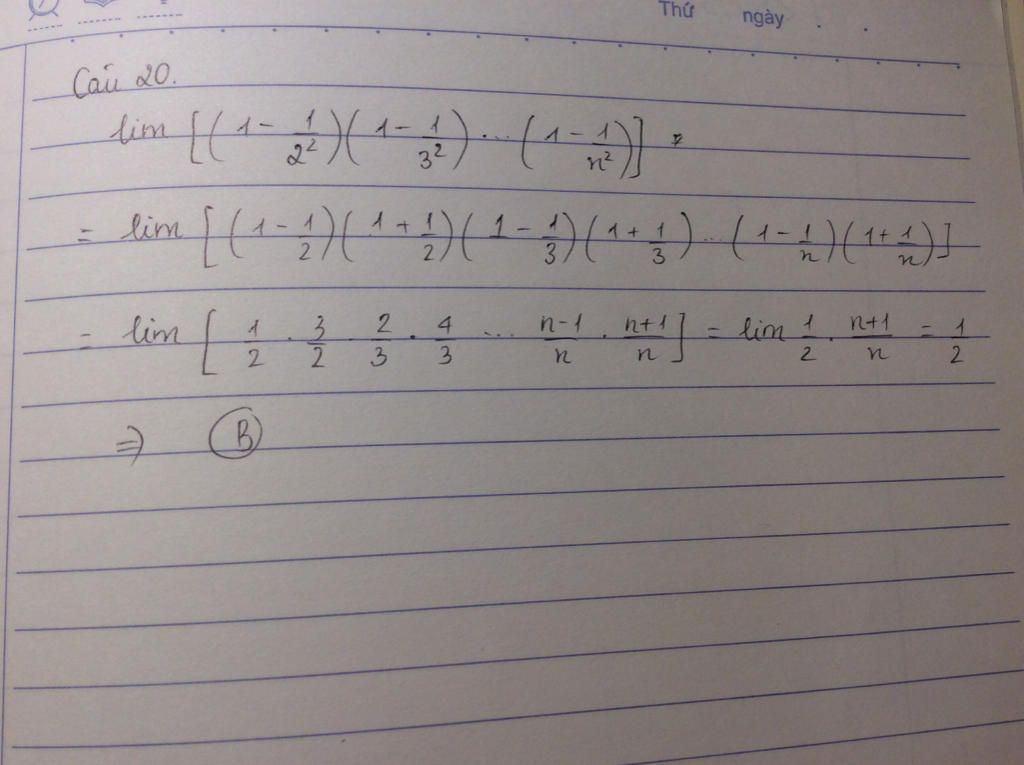 Thứ ngày . .
Câu 20.
lim [(1 - 1/2²)(1 - 1/3²) ... (1 - 1/n²)]
= lim [(1 - 1/2)(1 + 1/2)(1 - 1/3)(1 + 1/3) ... (1 - 1/n)(1 + 1/n)]
= lim [1/2 . 3/2 . 2/3 . 4/3 ... n-1/n . n+1/n] = lim 1/2 . n+1/n = 1/2
⇒ B